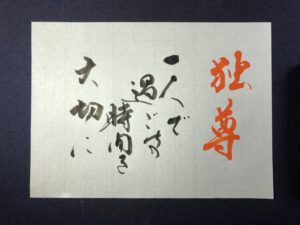 独尊
一人で
過ごす
時間を
大切に